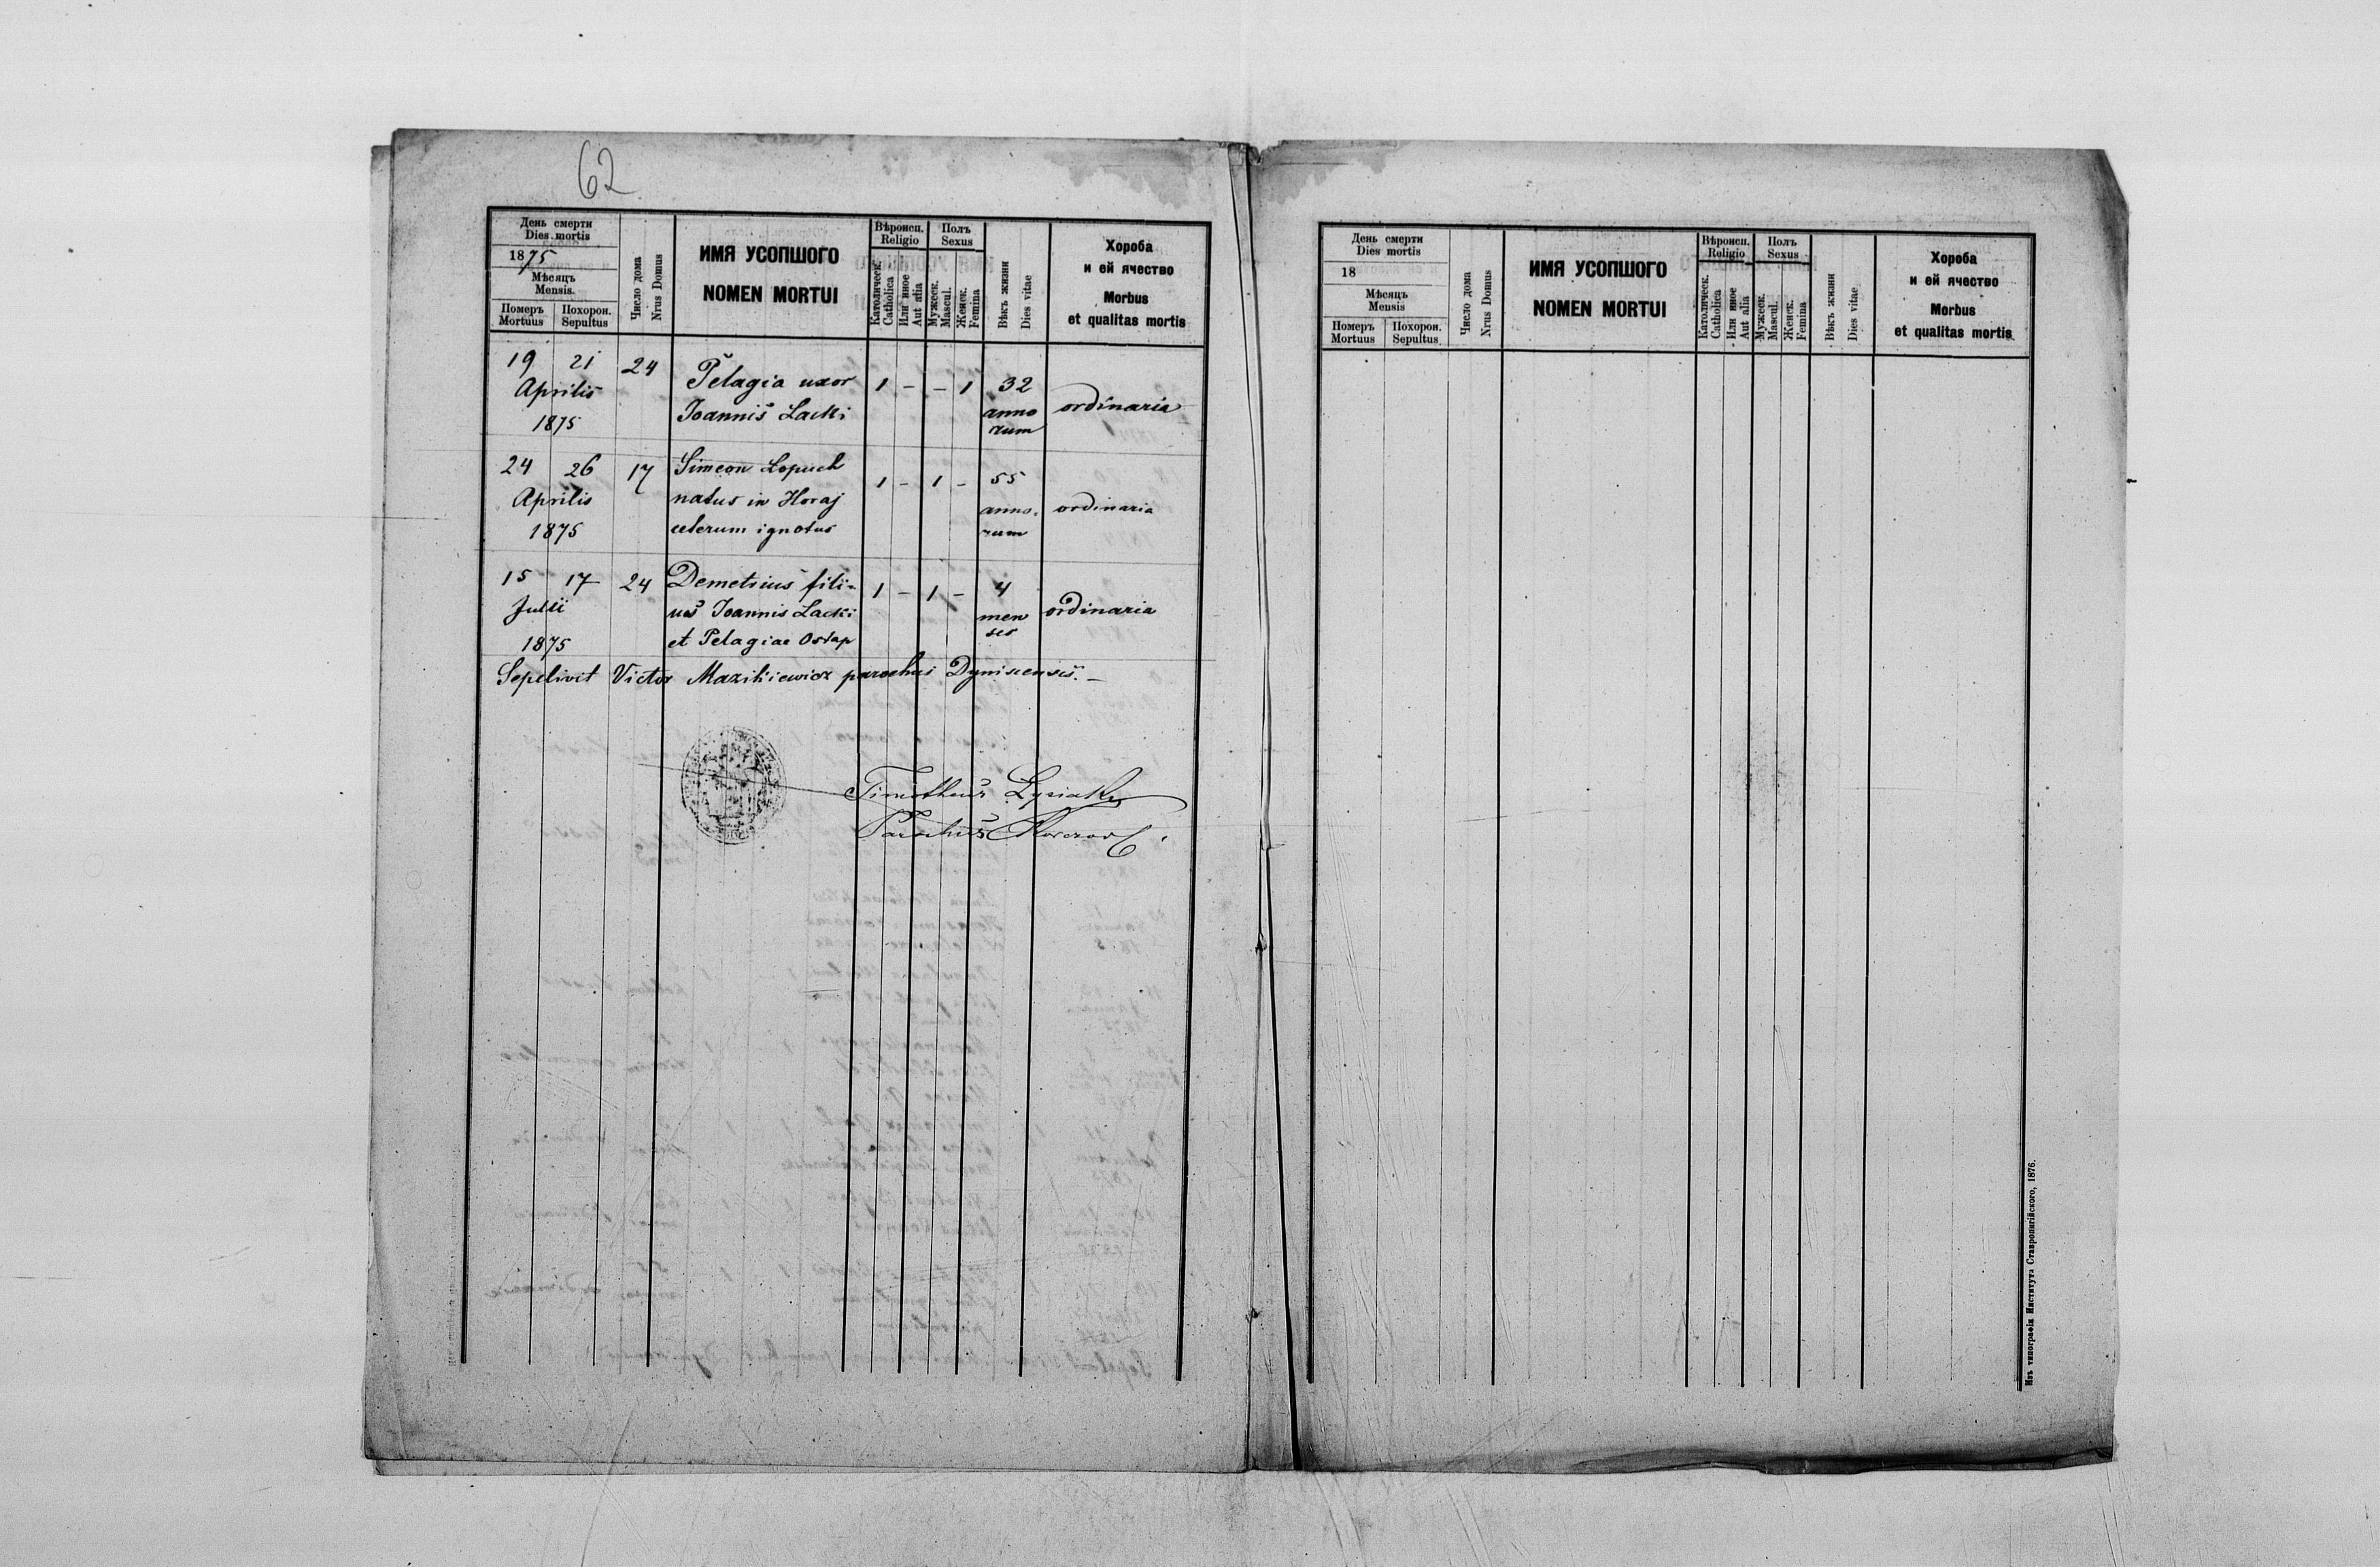 62
День смерти
Dies mortis
1875
Мѣсяцъ
Mensis.
Померъ
Mortuus
Похорон.
Sepultus
Число дома
Nrus Domus
ИМЯ УСОПШОГО
NOMEN MORTUI
Вѣроисп.
Religio
Католическ.
Catholica
Или иное
Aut alia
Полъ
Sexus
Мужеск.
Mascul.
Женск.
Femina
Вѣкъ жизни
Dies vitae
Хороба
и ей ячество
Morbus
et qualitas mortis
19 21 24 Pelagia uxor 1 - - 1 32
Aprilis Joannis Lacki anno ordinaria
1875 rum
24 26 17 Simeon Lopuch 1 - 1 - 55
Aprilis natus in Horaj anno- ordinaria
1875 ceterum ignotus rum
15 17 24 Demetrius fili- 1 - 1 - 4
Julii us Joannis Lacki men ordinaria
1875 et Pelagiae Ostap ses
Sepelivit Victor Mazikiewicz parochus Dyniscensis. -
Timotheus
Parochus
День смерти
Dies mortis
18
Мѣсяцъ
Mensis
Померъ
Mortuus
Похорон.
Sepultus
Число дома
Nrus Domus
ИМЯ УСОПШОГО
NOMEN MORTUI
Вѣроисп.
Religio
Католическ.
Catholica
Или иное
Aut alia
Полъ
Sexus
Мужеск.
Mascul.
Женск.
Femina
Вѣкъ жизни
Dies vitae
Хороба
и ей ячество
Morbus
et qualitas mortis
Изъ типографіи Института Ставропигійского, 1876.